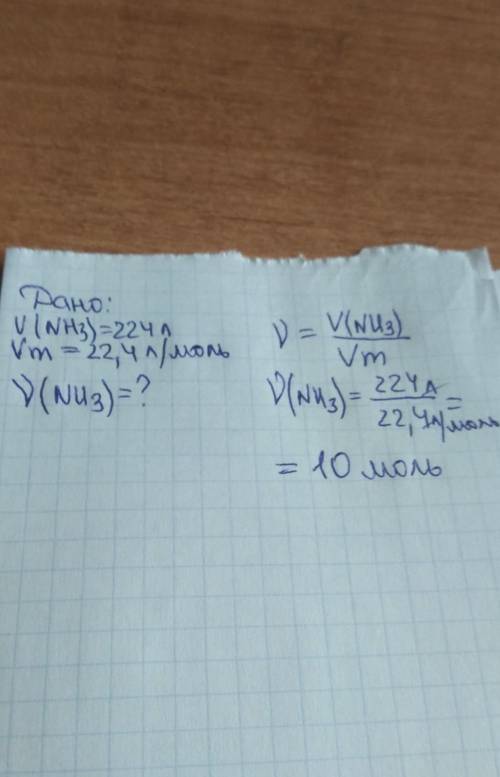 Дано:
V(NH3)=224 л
Vm = 22,4 л/моль
ν(NH3)=?
ν = V(NH3)/Vm
ν(NH3)= 224 л/22,4 л/моль =
= 10 моль